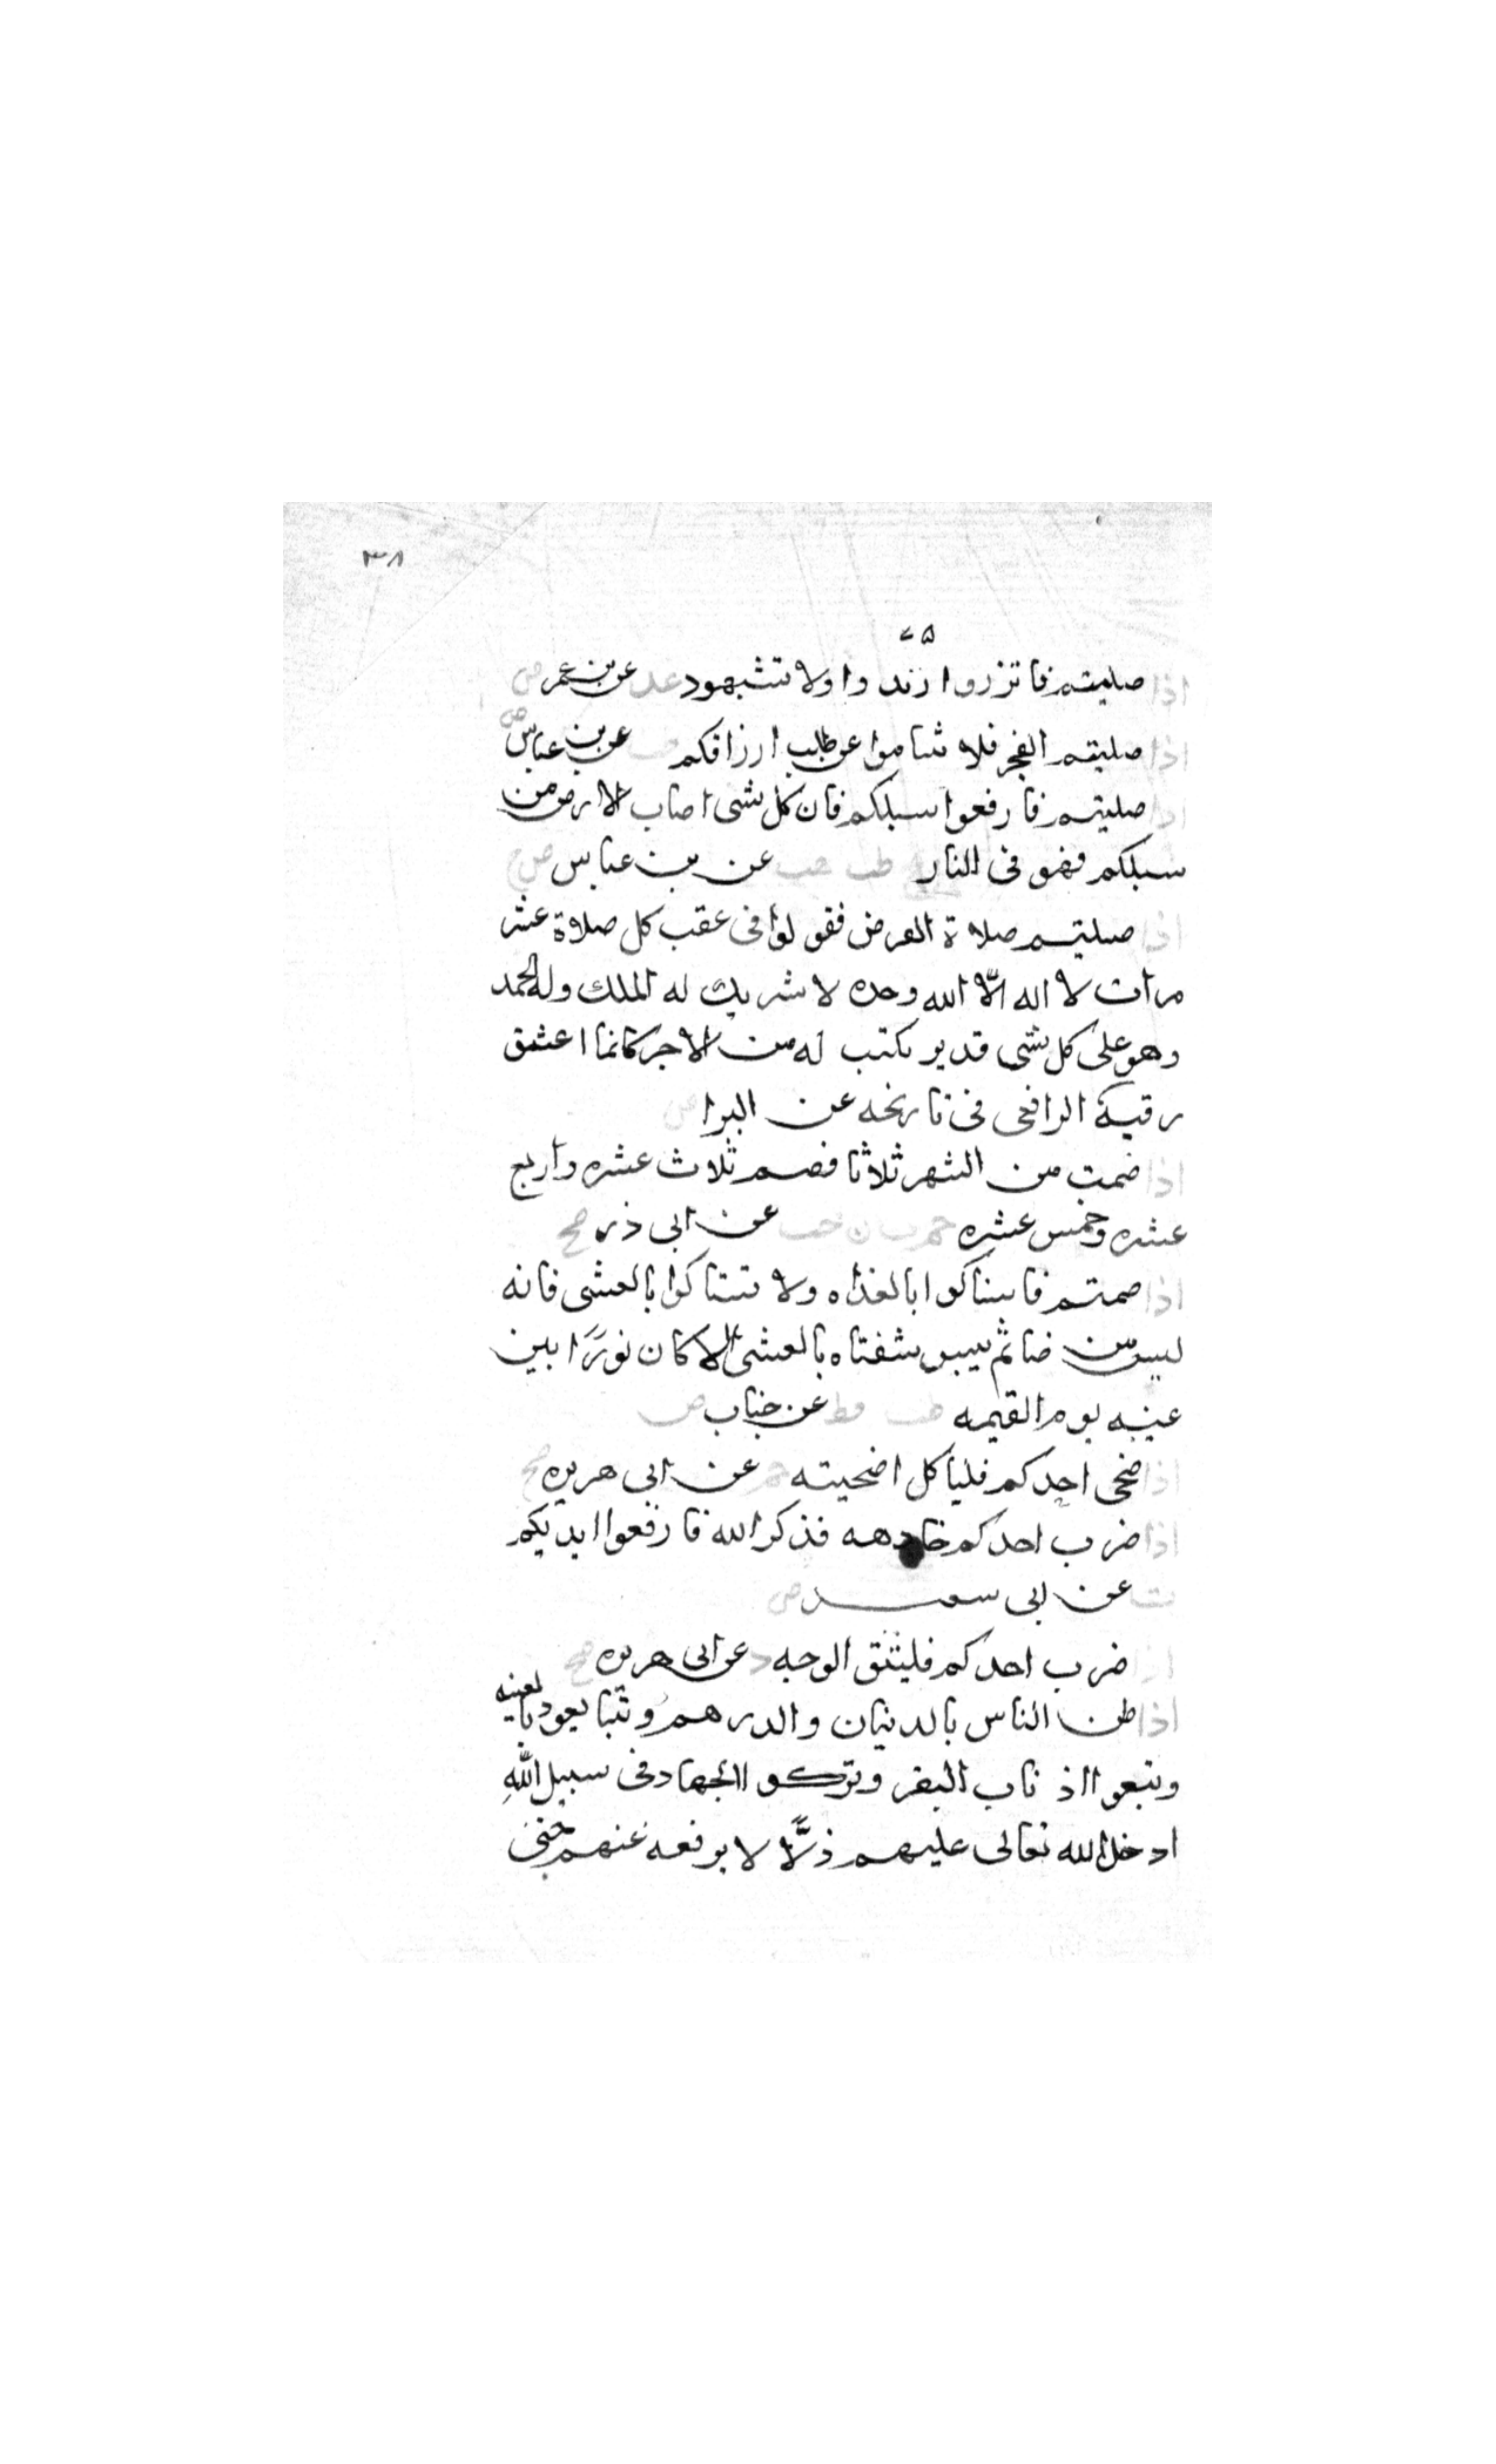 ٣٨
٧٥
اذا صليتم فاتزروا وارتدوا ولا تشبهوا عد عن بن عمر ض
اذا صليتم الفجر فلا تناموا عن طلب ارزاقكم طب عن بن عباس ض
اذا صليتم فارفعوا سبلكم فان كل شى اصاب الارض من
سبلكم فهو فى النار طب هب عن بن عباس ض
اذا صليتم صلاة الفرض فقولوا فى عقب كل صلاة عشر
مرات لا اله الّا الله وحده لا شريك له الملك وله الحمد
وهو على كل شى قدير يكتب له من الاجر كانما اعتق
رقبة الرافعى فى تاريخه عن البرا ض
اذا صمت من الشهر ثلاثا فصم ثلاث عشره واربع
عشره وخمس عشره حم ت ن حب عن ابى ذر صح
اذا صمتم فاستاكوا بالغداه ولا تستاكوا بالعشى فانه
ليس من صائم يبس شفتاه بالعشى الا كان نورًا بين
عينيه يوم القيمه طب قط عن خباب ض
اذا ضحى احدكم فلياكل اضحيته حم عن ابى هريره صح
اذا ضرب احدكم خادمه فذكر الله فارفعوا ايديكم
ت عن ابى سعيد ض
اذا ضرب احدكم فليتق الوجه د عن ابى هريره صح
اذا ظن الناس بالدنيان والدرهم وتبايعوا بالعينه
وتبعوا اذناب البقر وتركوا الجهاد فى سبيل الله
ادخل الله تعالى عليهم ذلًّا لا يرفعه عنهم حتى